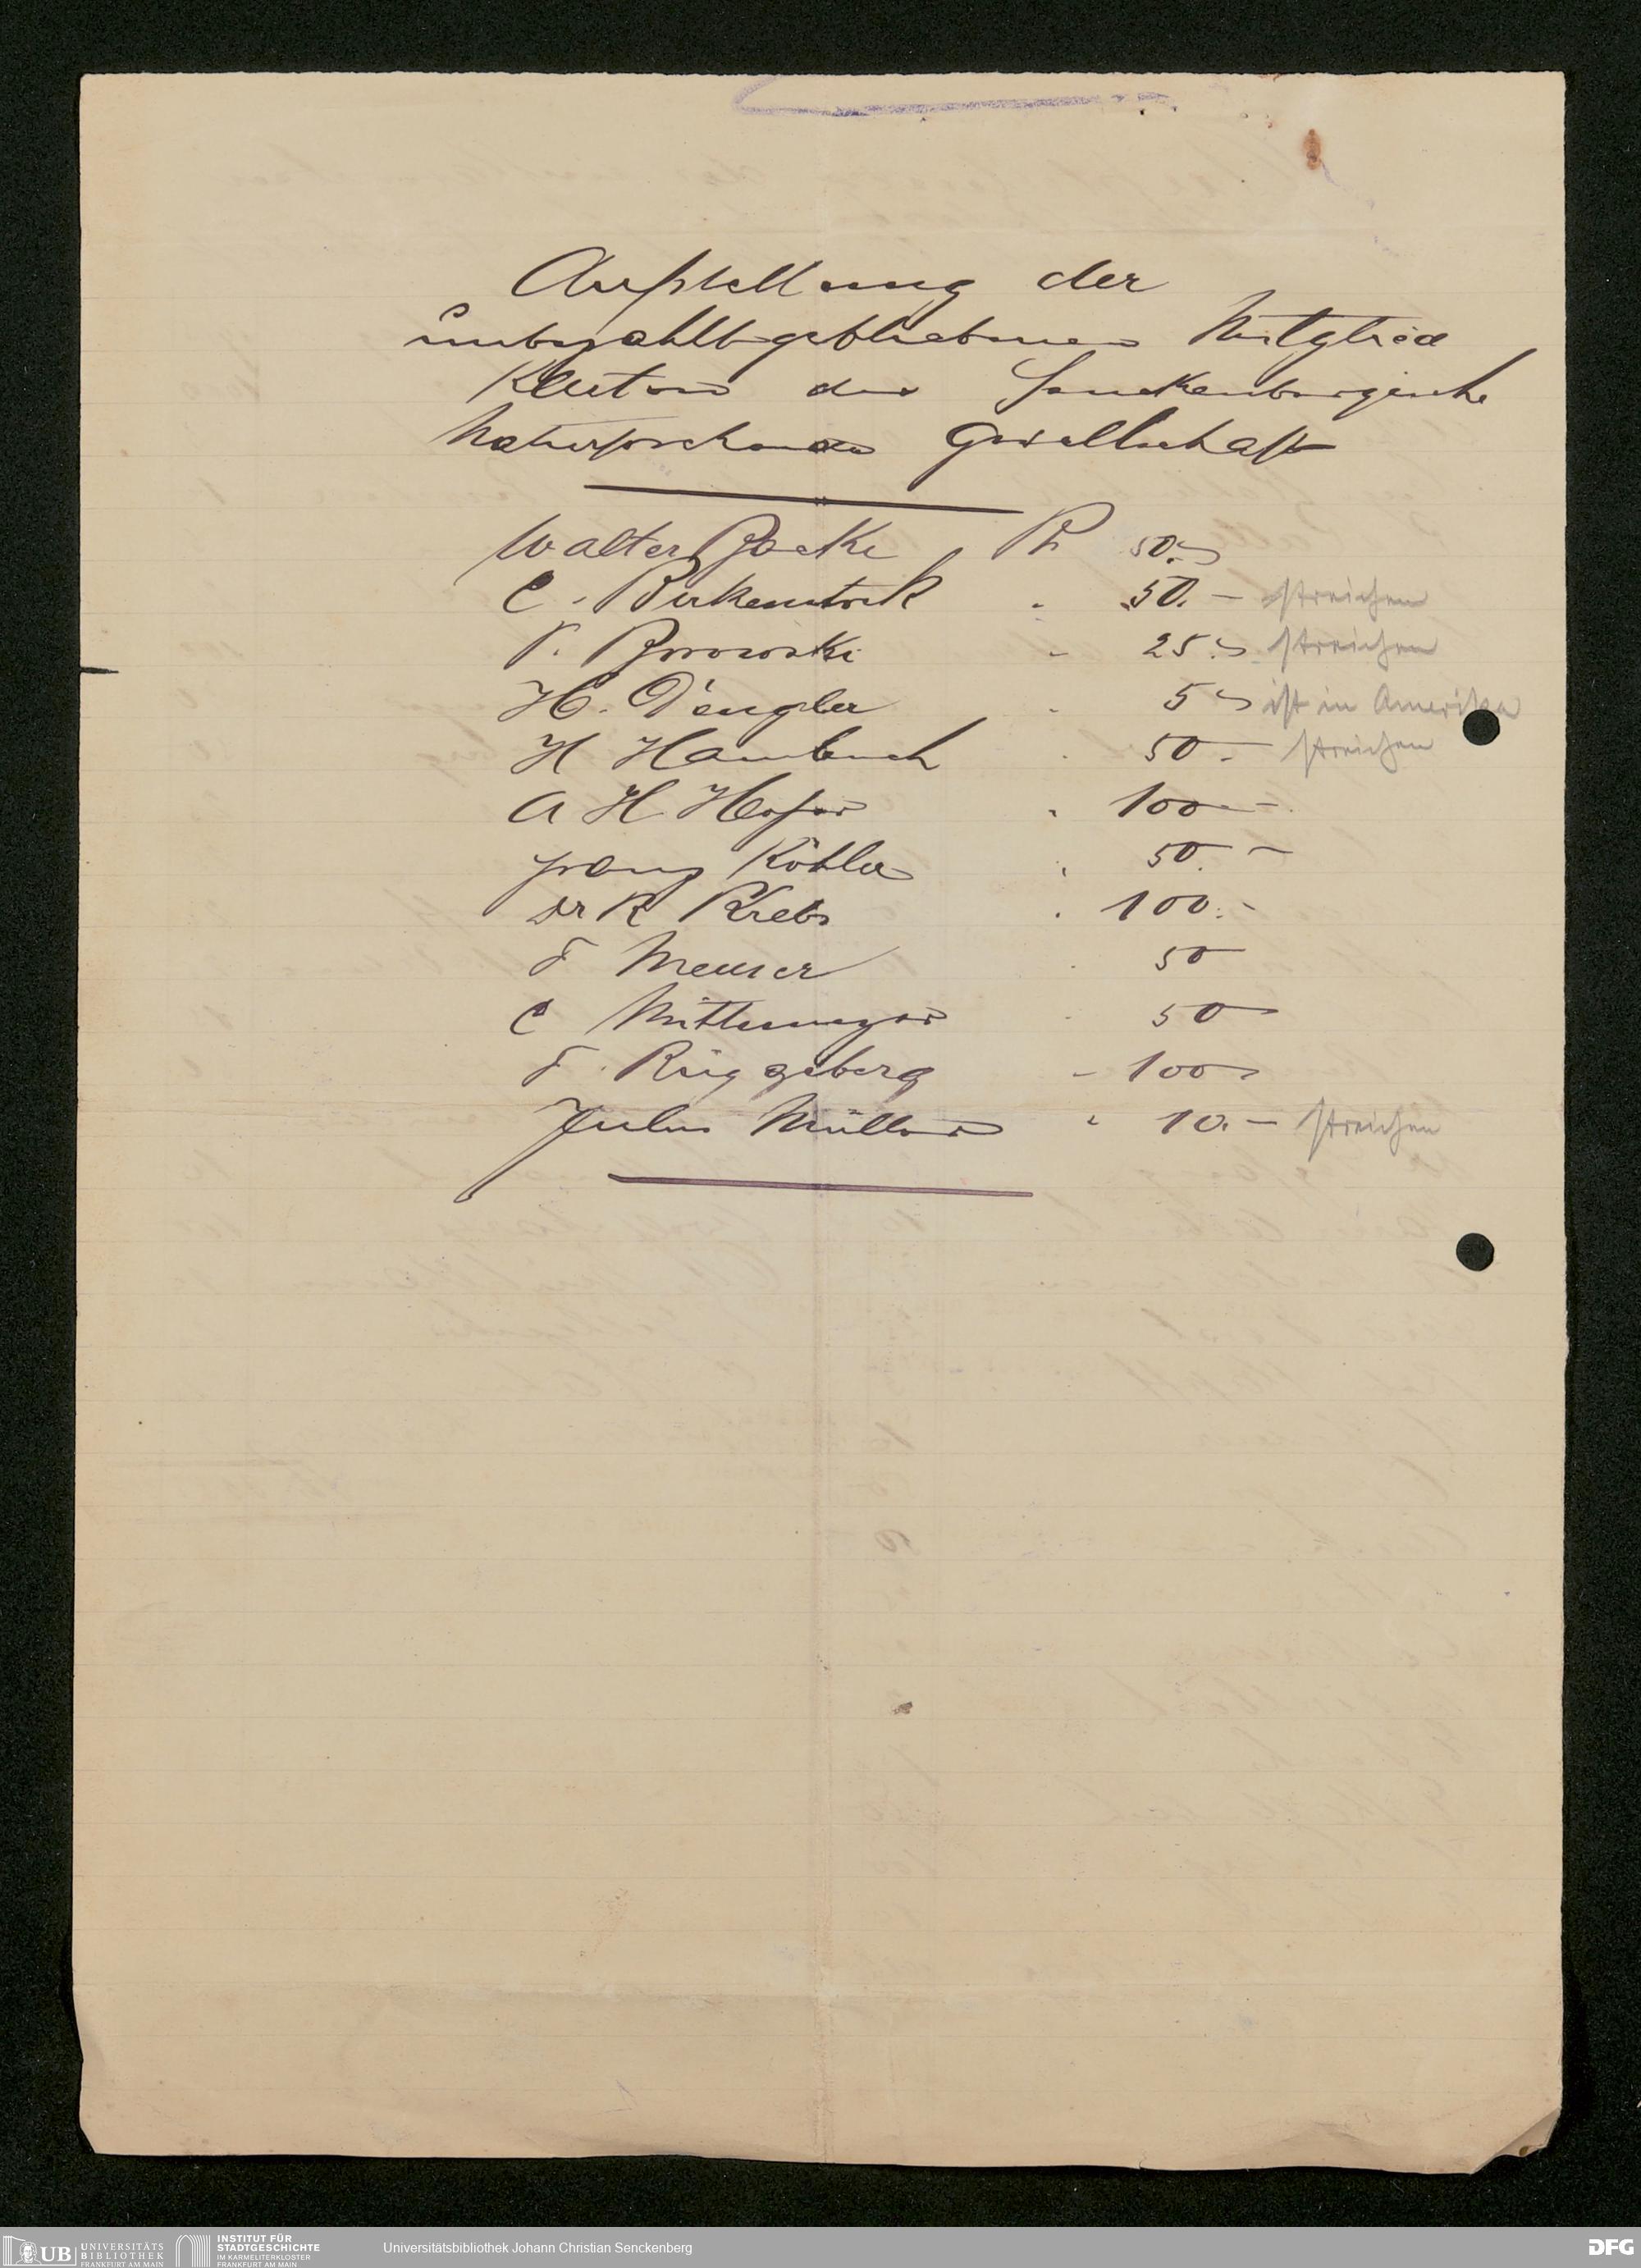 Aufstellung der
unbezahlt gebliebenen Mitglied
der Senckenbergische
Naturforschenden Gesellschaft
Walter 50.-
C. Birkenstock " 50.- streichen
P. Borowski " 25.- streichen
H. Dengler " 5 - ist in Amerika
H Hambuch " 50.- streichen
A H Hofer " 100.-
Franz Köhler " 50.-
Dr R Krebs " 100.-
F Meuser " 50
C Mittermeyer " 50
F. Rüggeberg " 100
Julius Müller " 10.- streichen
UB UNIVERSITÄTS
BIBLIOTHEK
FRANKFURT AM MAIN
INSTITUT FÜR
STADTGESCHICHTE
IM KARMELITERKLOSTER
FRANKFURT AM MAIN
Universitätsbibliothek Johann Christian Senckenberg
DFG